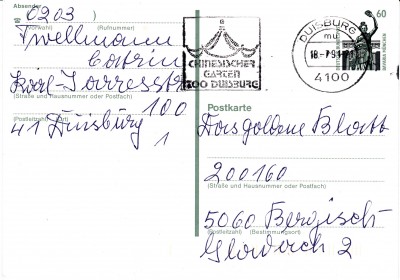 Absender
0203
(Vorwahl) (Rufnummer)
Twellmann
Catrin
Karl-Jarresstr
100
(Straße und Hausnummer oder Postfach)
41 Duisburg
1
(Postleitzahl) (Ort)
CHINESISCHER
GARTEN
ZOO DUISBURG
DUISBURG
mu
18.-7.91
4100
60
Postkarte
Das goldene Blatt
200160
(Straße und Hausnummer oder Postfach)
5060 Bergisch-
(Postleitzahl) (Bestimmungsort)
Gladbach 2